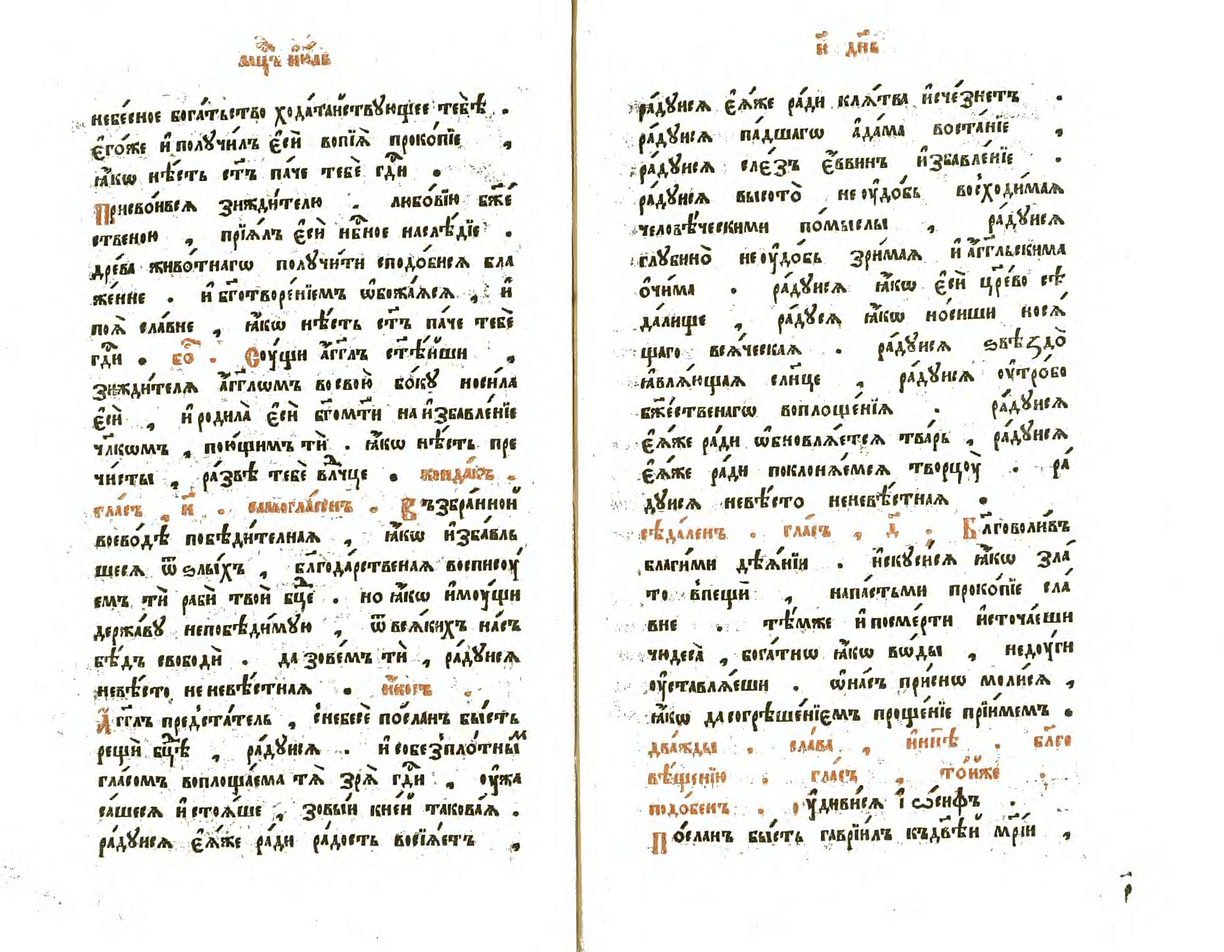 мц҃ъ і҆ю́лѧ
небе́сное бога́тьство хода́таиствꙋющее тебѣ̀ .
є҆го́же и҆ получи́лъ є҆сѝ вопїѧ̀ проко́пїе ,
ꙗ҆́кѡ нѣ́сть ст҃ъ па́че тебѐ гдⷭ҇и .
Присво́ивсѧ зижди́телю . любо́вїю бж҃е́
ственою , прїѧ́лъ є҆сѝ нбⷭ҇ное наслѣ́дїе .
дре́ва живо́тнагѡ получи́ти сподо́бисѧ бла
же́нне . и҆ бг҃отворе́нїемъ ѡ҆божа́ѧсѧ , и҆
поѧ̀ сла́вне , ꙗ҆́кѡ нѣ́сть ст҃ъ па́че тебѐ
гдⷭ҇и . бо҃ . Соу́щи а҆́гг҃лъ ст҃ѣ́йши ,
зижди́телѧ а҆́гг҃лѡмъ во свою̀ бо́кꙋ носи́ла
є҆сѝ , и҆ родила̀ є҆сѝ бг҃ом҃ти на и҆збавле́нїе
чл҃кѡмъ , пою́щимъ тѝ . ꙗ҆́кѡ нѣ́сть пре
чи́сты , ра́звѣ тебѐ влⷣчце . конда́къ .
гла́съ , и҃ . самогла́сенъ . Въ́збра́нной
воево́дѣ побѣди́телнаѧ , ꙗ҆́кѡ и҆зба́вль
шесѧ ѿ ѕлы́хъ , блг҃ода́рственаѧ восписоу́
емъ тѝ рабѝ твоѝ бцⷣе . но ꙗ҆́кѡ и҆мꙋ́щи
держа́вꙋ непобѣди́мꙋю , ѿ всѧ́кихъ на́съ
бѣ́дъ свободѝ . да зове́мъ тѝ , ра́дꙋисѧ
невѣ́сто неневѣ́стнаѧ . и҆́косъ .
А҆́гг҃лъ предста́тель , с̾небесѐ по́сланъ бы́сть
рещѝ бцⷣѣ , ра́дꙋисѧ . и҆ со безпло́тныⷨ
гла́сомъ воплоща́ема тѧ̀ зрѧ̀ гдⷭ҇и , оу҆жа
са́шесѧ и҆ стоѧ́ше , зовы́и к̾не́й такова́ѧ .
ра́дꙋисѧ є҆ѧ́же ра́ди ра́дость восїѧ́етъ ,
и҃ дн҃ь
ра́дꙋисѧ є҆ѧ́же ра́ди клѧ́тва и҆сче́знетъ .
ра́дꙋисѧ па́дшагѡ а҆да́ма воста́нїе ,
ра́дꙋисѧ сле́зъ є҆́ввинъ и҆збавле́нїе .
ра́дꙋисѧ высото̀ не оу҆до́бь восходи́маѧ
человѣ́ческими по́мыслы , ра́дꙋисѧ
глꙋбино̀ не оу҆до́бь зри́маѧ и҆ а҆́гг҃льскима
о҆чи́ма . ра́дꙋисѧ ꙗ҆́кѡ є҆сѝ црⷭ҇ево сѣ
да́лище , ра́дꙋсѧ ꙗ҆́кѡ но́сиши носѧ́
щаго всѧ́ческаѧ . ра́дꙋисѧ ѕвѣздо̀
ꙗ҆влѧ́ющаѧ сл҃нце , ра́дꙋисѧ оу҆тро́бо
бж҃е́ственагѡ воплоще́нїѧ . ра́дꙋисѧ
є҆ѧ́же ра́ди ѡ҆бновлѧ́етсѧ тва́рь , ра́дꙋисѧ
є҆ѧ́же ра́ди поклонѧ́емсѧ творцоу̀ . ра́
дꙋисѧ невѣ́сто неневѣ́стнаѧ .
сѣда́ленъ . гла́съ , д҃ . Бл҃говоли́въ
благи́ми дѣѧ́нїи . и҆скꙋси́сѧ ꙗ҆́кѡ зла́
то в̾пещѝ , напа́стьми проко́пїе сла́
вне . тѣ́мже и҆ посме́рти и҆сточа́еши
чюдеса̀ , бога́тнѡ ꙗ҆́кѡ во́ды , недꙋ́ги
оу҆ставлѧ́еши . ѡ҆ на́съ при́снѡ моли́сѧ ,
ꙗ҆́кѡ да согрѣше́нїємъ проще́нїе прїи́мемъ .
два́жды . сла́ва , и҆ ны́нѣ . бл҃го
вѣ́щенїю . гла́съ , то́йже .
подо́бенъ . оу҆диви́сѧ і҆ѡ́сифъ .
По́сланъ бы́сть гаврїи́лъ къ дв҃ѣй мр҃і́и ,
р҃